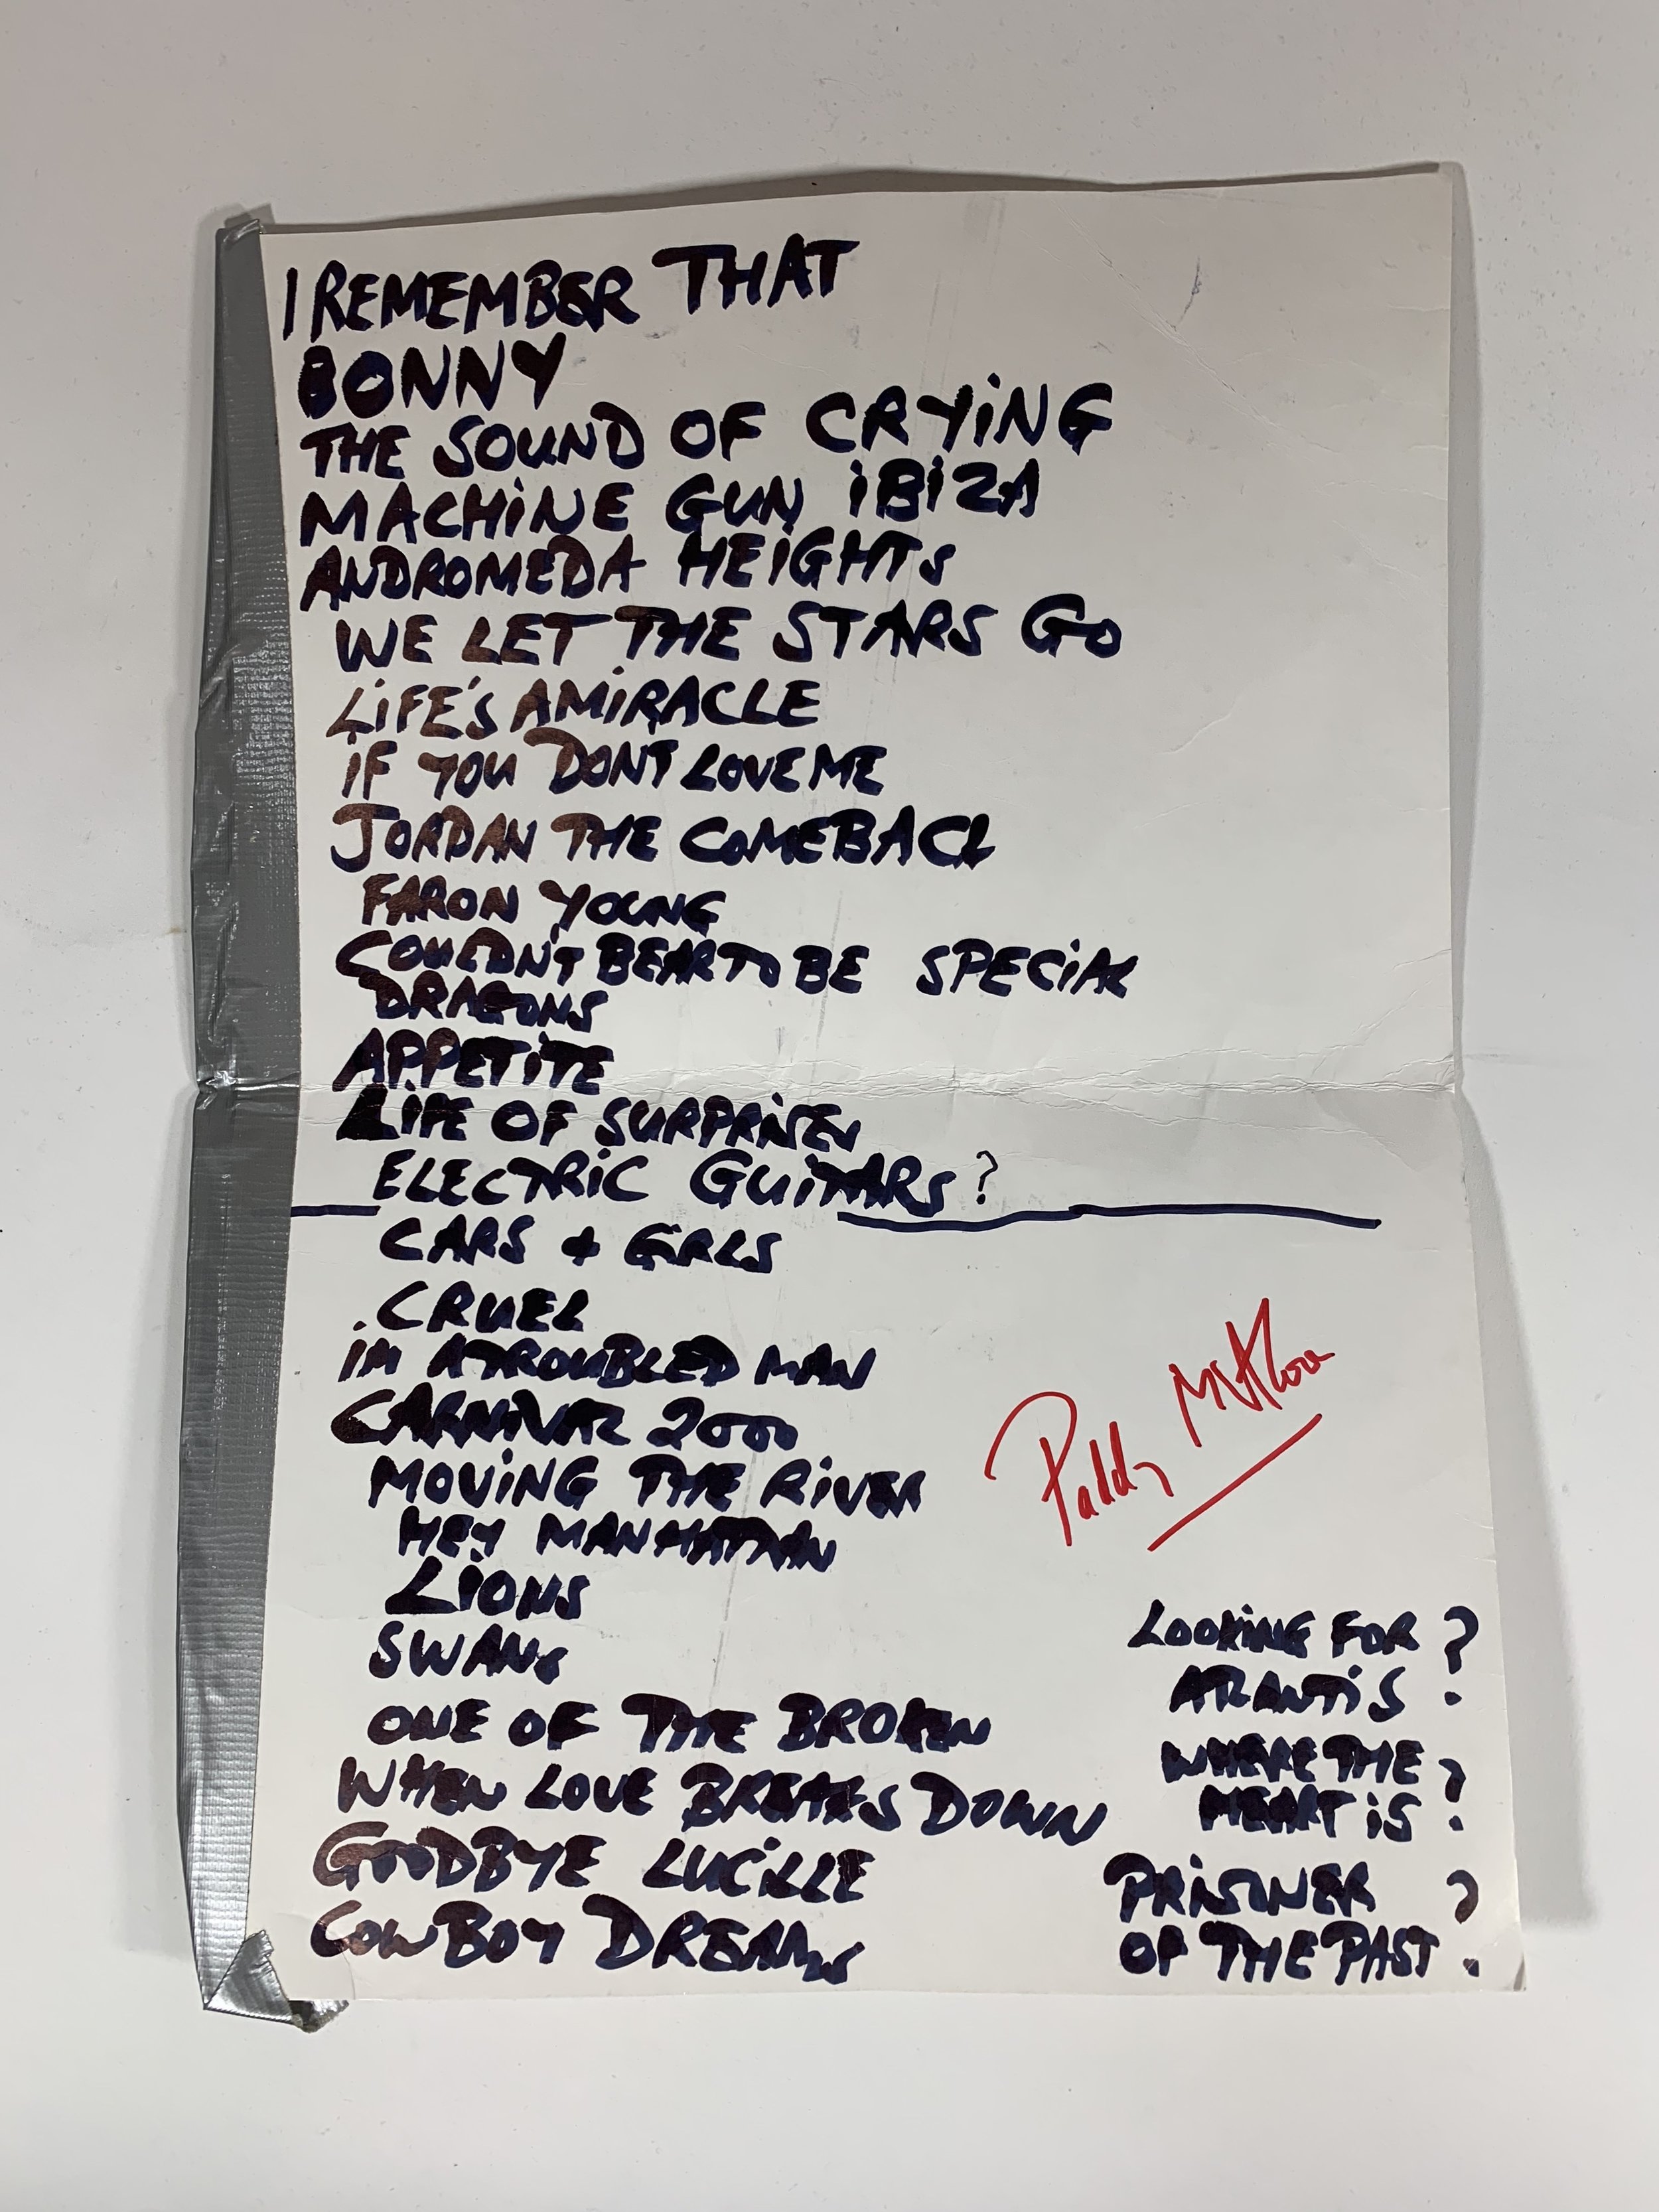 I REMEMBER THAT
BONNY
THE SOUND OF CRYiNG
MACHiNE GUN iBiZA
ANDROMEDA HEiGHTS
WE LET THE STARS GO
LiFE'S A MiRACLE
iF YOU DONT LOVE ME
JORDAN THE COMEBACK
FARON YOUNG
COULDN'T BEAR TO BE SPECiAL
DRAGONS
APPETiTE
LiFE OF SURPRiSES
ELECTRiC GUiTARS ?
CARS + GiRLS
CRUEL
iM A TROUBLED MAN
CARNiVAL 2000
MOViNG THE RiVER
HEY MANHATTAN
LiONS
SWANS
ONE OF THE BROKEN
WHEN LOVE BREAKS DOWN
GOODBYE LUCiLLE
COWBOY DREAMS
Paddy McAloon
LOOKiNG FOR ?
ATLANTiS
WHERE THE ?
HEART iS
PRiSONER ?
OF THE PAST